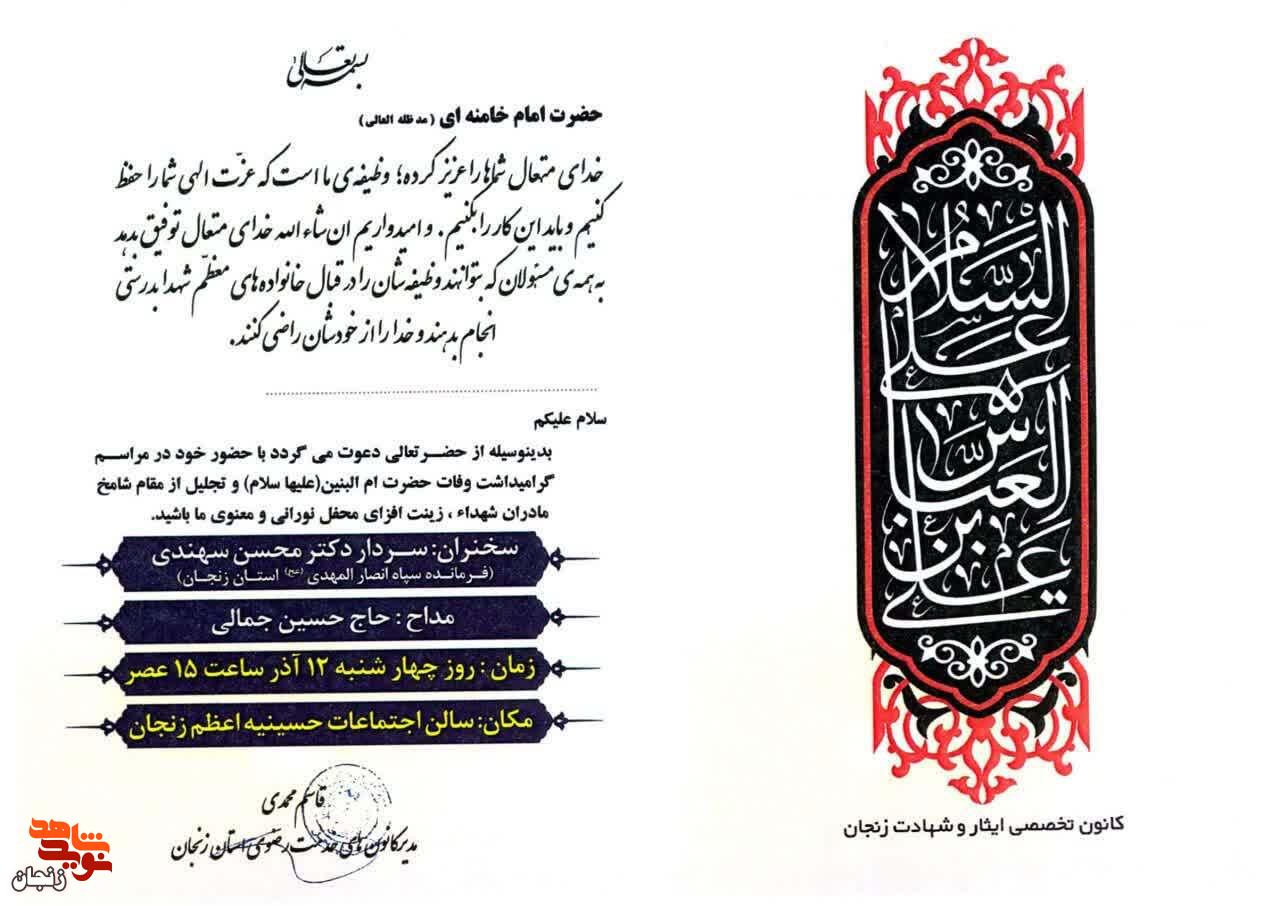 بسمه تعالی
حضرت امام خامنه ای (مد ظله العالی)
خدای متعال شماها را عزیز کرده؛ وظیفه‌ی ما است که عزّت الهی شما را حفظ
کنیم و باید این کار را بکنیم. و امیدواریم ان شاء الله خدای متعال توفیق بدهد
به همه‌ی مسئولان که بتوانند وظیفه‌شان را در قبال خانواده‌های معظّم شهدا بدرستی
انجام بدهند و خدا را از خودشان راضی کنند.
سلام علیکم
بدینوسیله از حضرتعالی دعوت می گردد با حضور خود در مراسم
گرامیداشت وفات حضرت ام البنین(علیها سلام) و تجلیل از مقام شامخ
مادران شهداء ، زینت افزای محفل نورانی و معنوی ما باشید.
سخنران: سردار دکتر محسن سهندی
(فرمانده سپاه انصار المهدی (عج) استان زنجان)
مداح : حاج حسین جمالی
زمان : روز چهار شنبه ۱۲ آذر ساعت ۱۵ عصر
مکان: سالن اجتماعات حسینیه اعظم زنجان
قاسم محمدی
مدیر کانون های خدمت رضوی استان زنجان
السلام
علی
العباس
بن
علی
کانون تخصصی ایثار و شهادت زنجان
نوید شاهد
زنجان